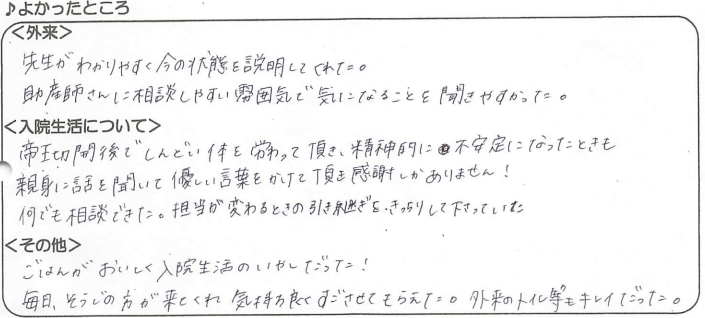 ♪よかったところ
<外来>
先生がわかりやすく今の状態を説明してくれた。
助産師さんに相談しやすい雰囲気で気になることを聞きやすかった。
<入院生活について>
帝王切開後でしんどい体を労わって頂き、精神的に不安定になったときも
親身に話を聞いて優しい言葉をかけて頂き感謝しかありません!
何でも相談できた。担当が変わるときの引き継ぎをきっちりして下さっていた
<その他>
ごはんがおいしく入院生活のいやしだった!
毎日、そうじの方が来てくれ気持ち良くすごさせてもらえた。外来のトイレ等もキレイだった。